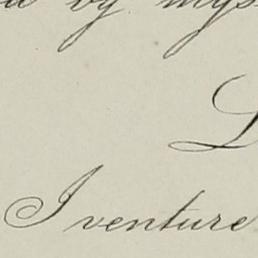 by mys
I venture